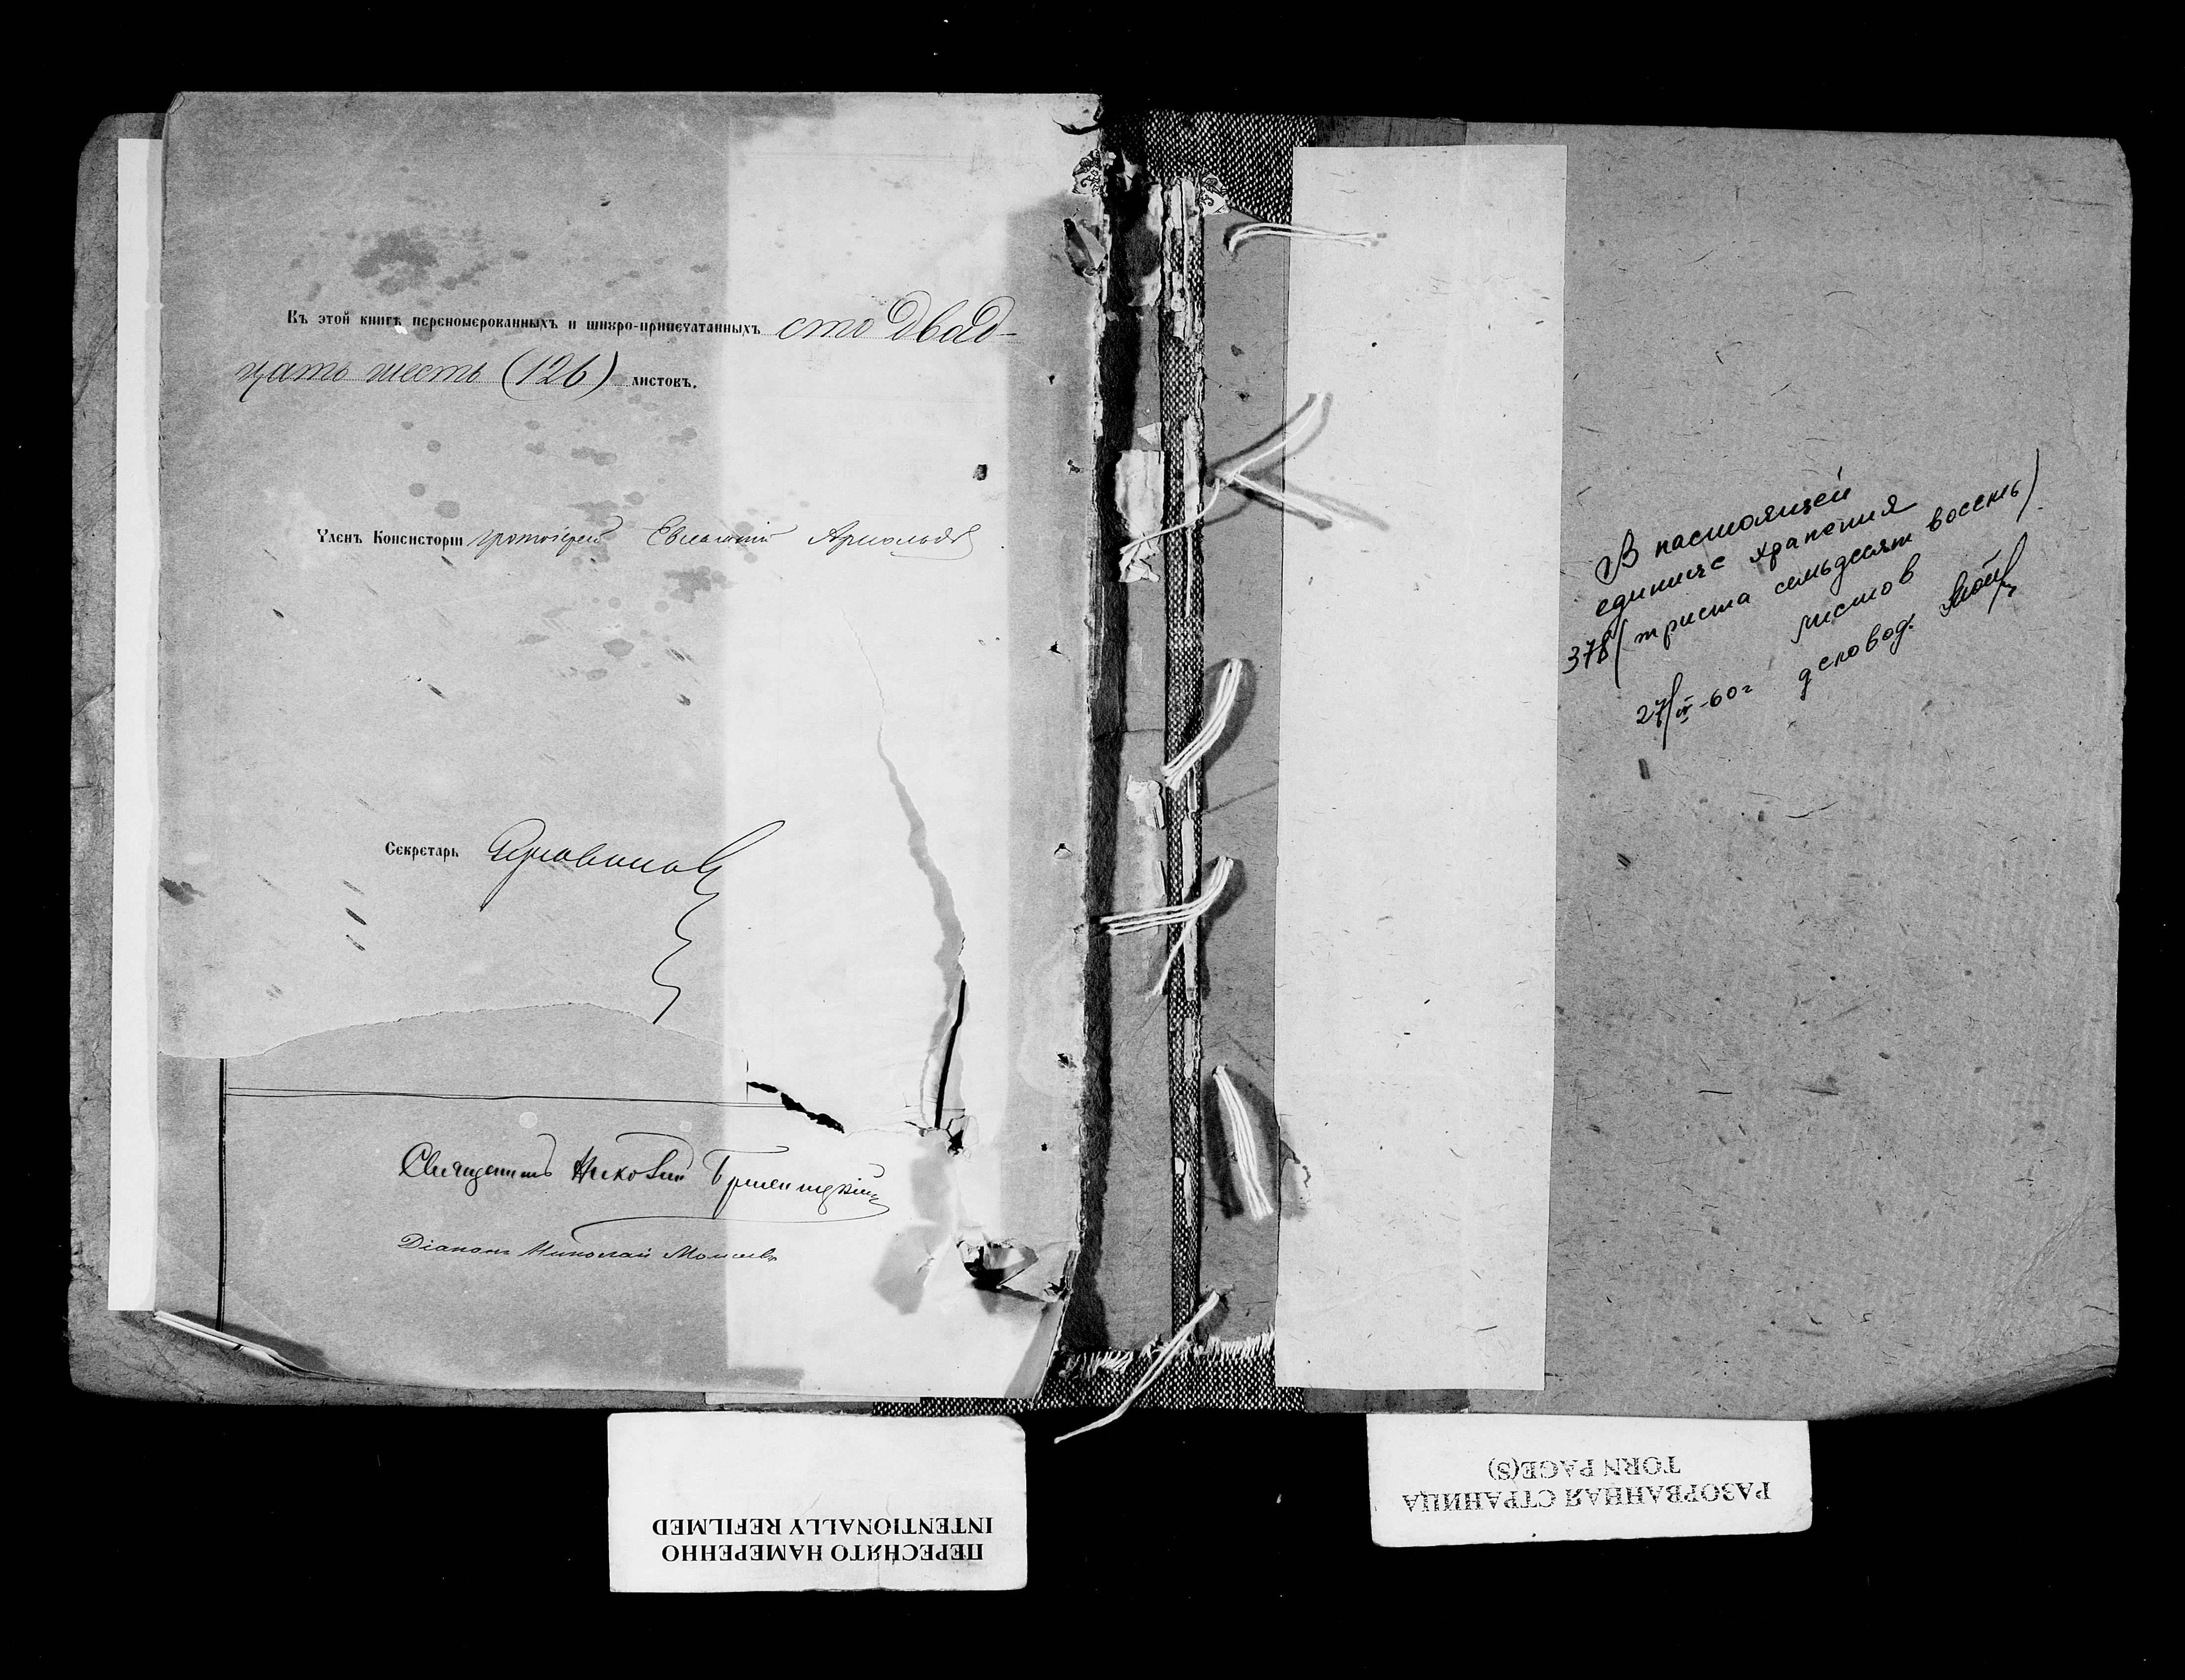 Въ этой книгѣ перепомерованныхъ и шнуро-припечатанныхъ сто двад-
цать шесть (126) листовъ.
Членъ Консисторіи протоіерей Евлампій Арнольдовъ
Секретарь
Священникъ Николай
Діаконъ Николай
В настоящей
единице хранения
378 (триста семьдесят восемь)
листов
27/IV-60г деловод.
ПЕРЕСНЯТО НАМЕРЕННО
INTENTIONALLY REFILMED
РАЗОРВАННАЯ СТРАНИЦА
TORN PAGE(S)